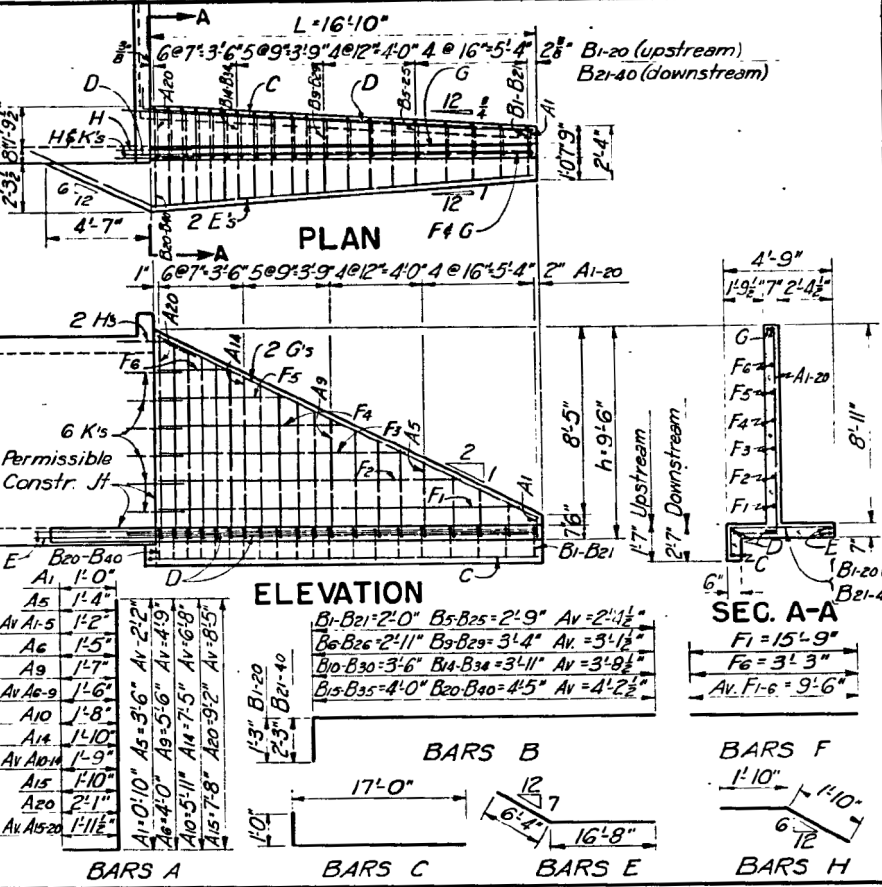 A
L = 16'-10"
6@7"=3'-6" 5@9"=3'-9" 4@12"=4'-0" 4 @ 16"=5'-4" 2⅝" B1-20 (upstream)
B21-40 (downstream)
D
A20
B14-B34
C
B9-B29
D
B5-25
G
B1-B21
A1
12
H
H & K's
1'-9½"
8"
2'-3½"
6
12
4'-7"
B20-B40
2 E's
12
1
F & G
1'-0"
7"
9"
2'-4"
A
PLAN
1" 6@7"=3'-6" 5@9"=3'-9" 4@12"=4'-0" 4 @ 16"=5'-4" 2" A1-20
4'-9"
1'-9½" 7" 2'-4½"
2 H's
A20
F6
A14
2 G's
F5
A9
F4
F3
A5
F2
2
1
F1
A1
6 K's
Permissible
Constr. Jt
8'-5"
h=9'-6"
7"
6"
1'-7" Upstream
2'-7" Downstream
G
F6
F5
F4
F3
F2
F1
A1-20
8'-11"
E
D
C
7"
6"
B1-20
B21-4
E
B20-B40
D
C
B1-B21
ELEVATION
SEC. A-A
A1 1'-0"
A5 1'-4"
Av A1-5 1'-2"
A6 1'-5"
A9 1'-7"
Av A6-9 1'-6"
A10 1'-8"
A14 1'-10"
Av A10-14 1'-9"
A15 1'-10"
A20 2'-1"
Av A15-20 1'-11½"
A1=0'-10" A5=3'-6" Av=2'-2"
A6=4'-0" A9=5'-6" Av=4'-9"
A10=5'-11" A14=7'-5" Av=6'-8"
A15=7'-8" A20=9'-2" Av=8'-5"
BARS A
B1-B21=2'-0" B5-B25=2'-9" Av=2'-4½"
B6-B26=2'-11" B9-B29=3'-4" Av.=3'-1½"
B10-B30=3'-6" B14-B34=3'-11" Av=3'-8½"
B15-B35=4'-0" B20-B40=4'-5" Av=4'-2½"
1'-3" B1-20
2'-3" B21-40
BARS B
F1 = 15'-9"
F6 = 3'-3"
Av. F1-6 = 9'-6"
BARS F
17'-0"
1'-0"
BARS C
12
7
6'-4"
16'-8"
BARS E
1'-10"
1'-10"
6
12
BARS H